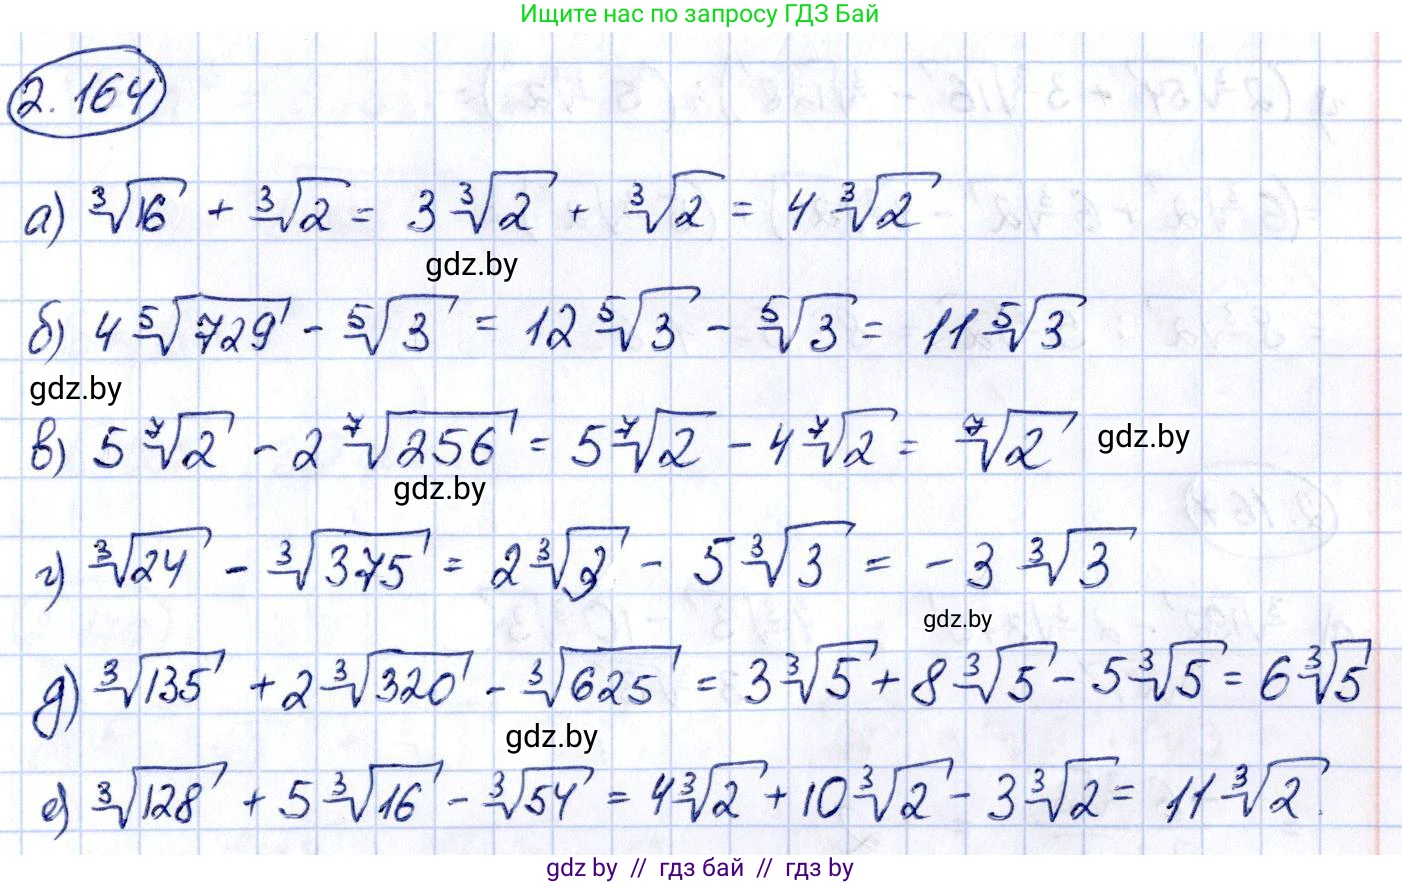 Ищите нас по запросу ГДЗ Бай
2.164
а) ∛16 + ∛2 = 3∛2 + ∛2 = 4∛2
gdz.by
б) 4⁵√729 - ⁵√3 = 12⁵√3 - ⁵√3 = 11⁵√3
gdz.by
в) 5⁷√2 - 2⁷√256 = 5⁷√2 - 4⁷√2 = ⁷√2 gdz.by
gdz.by
г) ∛24 - ∛375 = 2∛3 - 5∛3 = -3∛3
gdz.by
д) ∛135 + 2∛320 - ∛625 = 3∛5 + 8∛5 - 5∛5 = 6∛5
gdz.by
е) ∛128 + 5∛16 - ∛54 = 4∛2 + 10∛2 - 3∛2 = 11∛2.
gdz by // гдз бай // гдз by